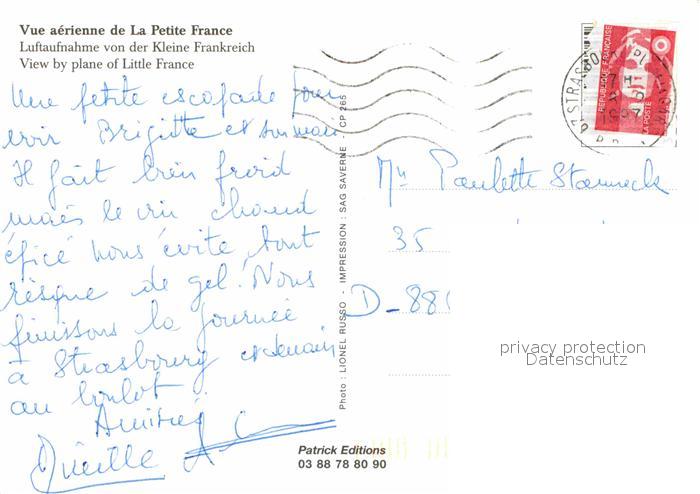 Vue aérienne de La Petite France
Luftaufnahme von der Kleine Frankreich
View by plane of Little France
Une petite escapade pour
voir Brigitte et son mari
Il fait bien froid
mais le vin chaud
épicé nous évite tout
risque de gel! Nous
finissons la journée
à Strasbourg et demain
au boulot
Amitiés
Photo : LIONEL RUSSO - IMPRESSION : SAG SAVERNE - CP 265
RÉPUBLIQUE FRANÇAISE
LA POSTE
Paulette
35
D-88
privacy protection
Datenschutz
Patrick Editions
03 88 78 80 90